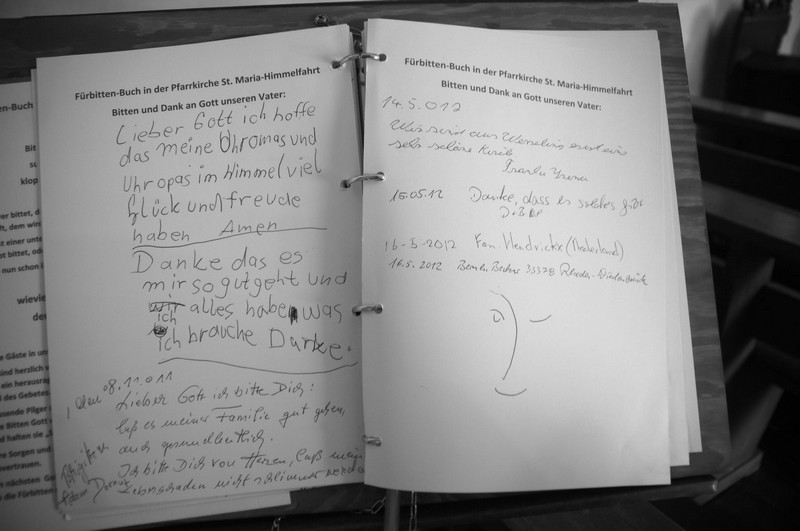 Fürbitten-Buch in der Pfarrkirche St. Maria-Himmelfahrt
Bitten und Dank an Gott unseren Vater:
Lieber Gott ich hoffe
das meine Uhromas und
Uhropas im Himmel viel
Glück und freude
haben Amen
Danke das es
mir so gut geht und
wir alles haben was
ich brauche Danke.
08.11.011
Lieber Gott ich bitte Dich:
laß es meiner Familie gut gehen,
auch gesundheitlich.
Ich bitte Dich von Herzen, laß mein
nicht schlimmer werden
Fürbitten-Buch in der Pfarrkirche St. Maria-Himmelfahrt
Bitten und Dank an Gott unseren Vater:
14.5.012
Wir sind aus
15.05.12 Danke, dass es solches gibt
16-5-2012 Fam. Hendrickx (Nederland)
16.5.2012 33378 Rheda-Wiedenbrück
en-Buch
Bit
su
klop
er bittet, d
ft, dem wir
st einer unte
st bittet, od
nun schon
wievie
de
e Gäste in un
ind herzlich v
ein herausrag
des Gebetes.
sende Pilger
Bitten Gott v
d halten sie
re Sorgen und
vertrauen.
nächsten Ga
die Fürbitten